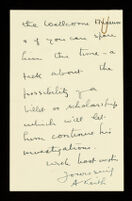 the Wellcome Museum
& if you can spare
him the time - a
talk about the
possibility of a
billet or scholarship
which will let
him continue his
investigations.
With best wishes
Yours sincly
A Keith